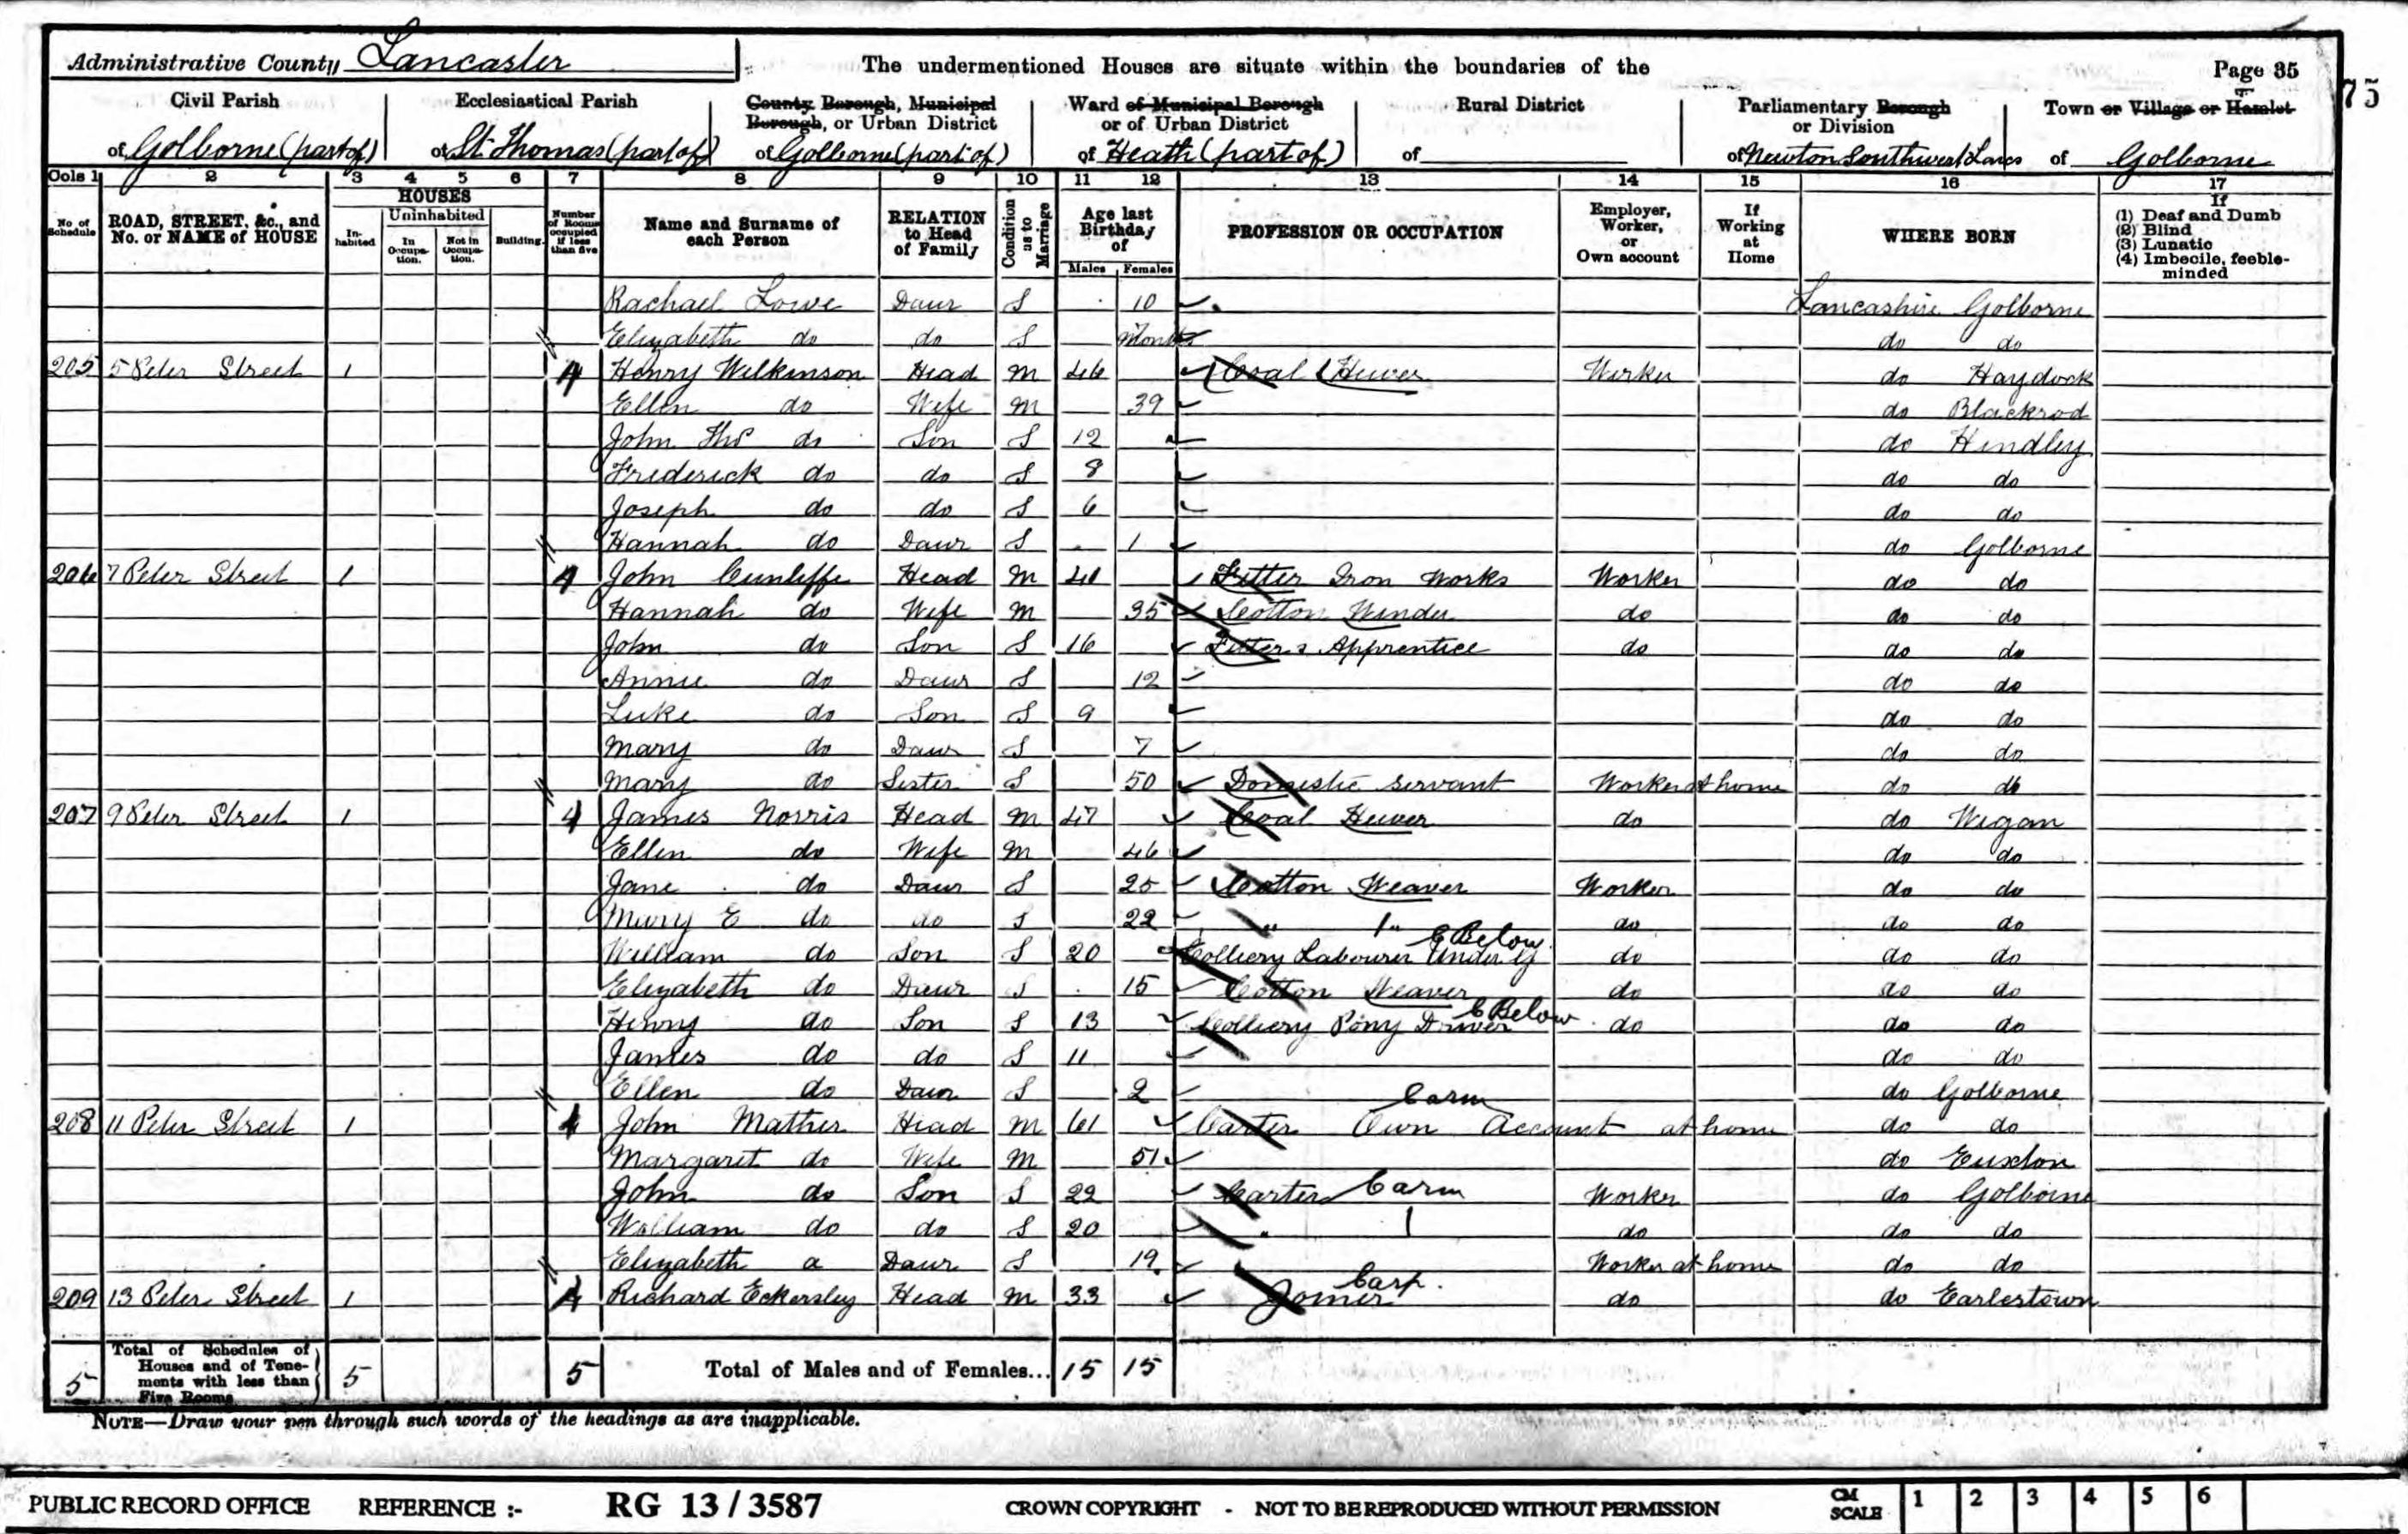 Administrative County Lancaster
The undermentioned Houses are situate within the boundaries of the
Page 35
75
Civil Parish of Golborne (part of)
Ecclesiastical Parish of St. Thomas (part of)
County Borough, Municipal Borough, or Urban District of Golborne (part of)
Ward of Municipal Borough or of Urban District of Heath (part of)
Rural District of
Parliamentary Borough or Division of Newton Southwest Lancs
Town or Village or Hamlet of Golborne
Cols 1 2 3 4 5 6 7 8 9 10 11 12 13 14 15 16 17
No. of Schedule
ROAD, STREET, &c., and No. or NAME of HOUSE
HOUSES
Inhabited
Uninhabited
In Occupation.
Not in Occupation.
Building.
Number of Rooms occupied if less than five
Name and Surname of each Person
RELATION to Head of Family
Condition as to Marriage
Age last Birthday of
Males Females
PROFESSION OR OCCUPATION
Employer, Worker, or Own account
If Working at Home
WHERE BORN
If
(1) Deaf and Dumb
(2) Blind
(3) Lunatic
(4) Imbecile, feeble-minded
Rachael Lowe Daur S 10 Lancashire Golborne
Elizabeth do do S Months do do
205 5 Peter Street 1 4 Henry Wilkinson Head M 46 Coal Hewer Worker do Haydock
Ellen do Wife M 39 do Blackrod
John Thos do Son S 12 do Hindley
Frederick do do S 8 do do
Joseph do do S 6 do do
Hannah do Daur S 1 do Golborne
206 7 Peter Street 1 4 John Cunliffe Head M 41 Fitter Iron Works Worker do do
Hannah do Wife M 35 Cotton Winder do do do
John do Son S 16 Fitters Apprentice do do do
Annie do Daur S 12 do do
Luke do Son S 9 do do
Mary do Daur S 7 do do
Mary do Sister S 50 Domestic Servant Worker at home do do
207 9 Peter Street 1 4 James Norris Head M 47 Coal Hewer do do Wigan
Ellen do Wife M 46 do do
Jane do Daur S 25 Cotton Weaver Worker do do
Mary E do do S 22 " " do do do
William do Son S 20 Colliery Labourer Under G Below do do do
Elizabeth do Daur S 15 Cotton Weaver do do do
Henry do Son S 13 Colliery Pony Driver Below do do do
James do do S 11 do do
Ellen do Daur S 2 do Golborne
208 11 Peter Street 1 4 John Mather Head M 61 Carter Carm Own Account at home do do
Margaret do Wife M 51 do Euxton
John do Son S 22 Carter Carm Worker do Golborne
William do do S 20 " do do do
Elizabeth a Daur S 19 Worker at home do do
209 13 Peter Street 1 4 Richard Eckersley Head M 33 Joiner Carp. do do Earlestown
5 Total of Schedules of Houses and of Tenements with less than Five Rooms 5 5 Total of Males and of Females... 15 15
NOTE—Draw your pen through such words of the headings as are inapplicable.
PUBLIC RECORD OFFICE REFERENCE :- RG 13 / 3587 CROWN COPYRIGHT - NOT TO BE REPRODUCED WITHOUT PERMISSION CM SCALE 1 2 3 4 5 6